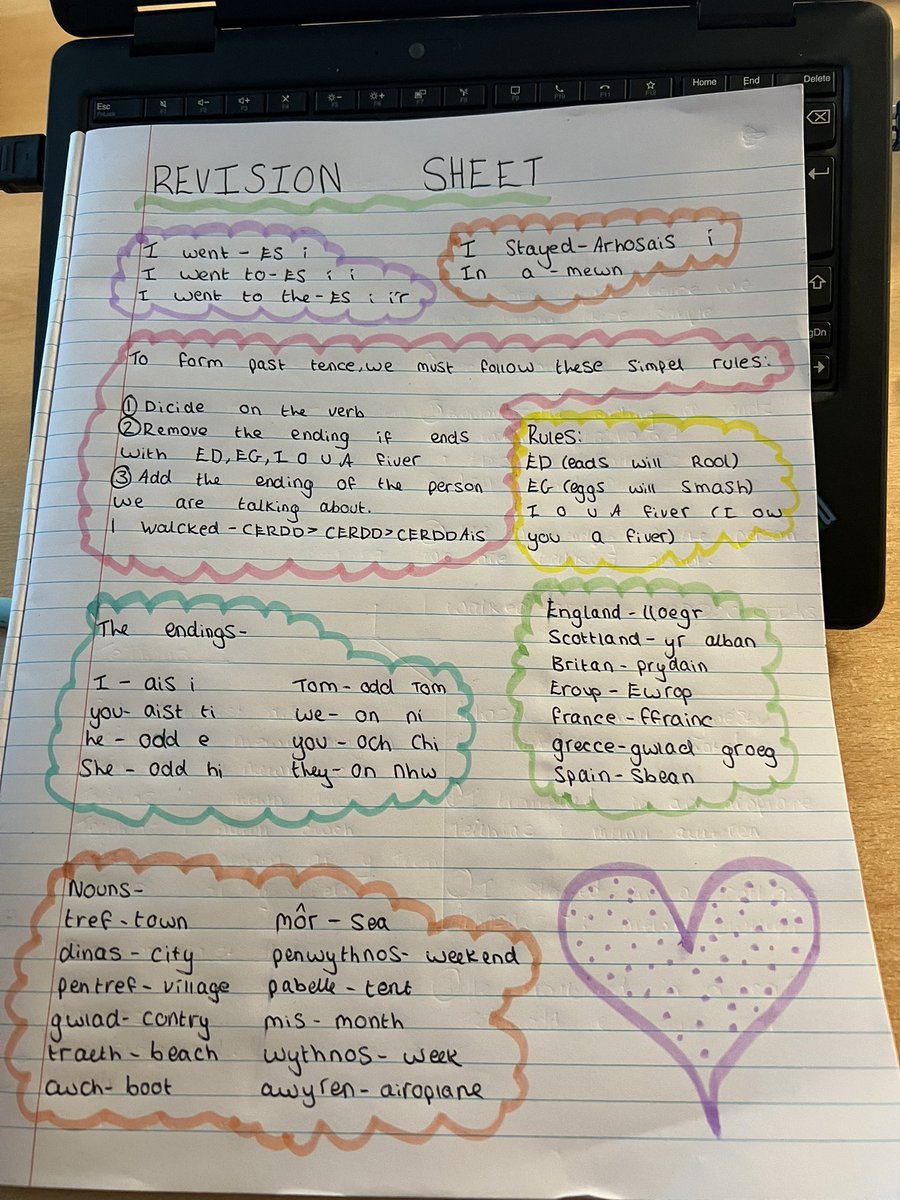 Esc
FnLock
F1
F2
F3
F4
F5
F6
F7
F8
F9
F10
F11
F12
Home
End
Delete
gDn
REVISION SHEET
I went - ES i
I went to - ES i i
I went to the - ES i i'r
I Stayed - Arhosais i
In a - mewn
To form past tence, we must follow these simpel rules:
① Dicide on the verb
② Remove the ending if ends
with ED, EG, I O U A fiver
③ Add the ending of the person
we are talking about.
I walcked - CERDD > CERDD > CERDDAis
Rules:
ED (eads will Rool)
EG (eggs will smash)
I O U A fiver (I ow
you a fiver)
The endings -
I - ais i
you - aist ti
he - odd e
She - odd hi
Tom - odd Tom
we - on ni
you - och chi
they - on nhw
England - lloegr
Scottland - yr alban
Britan - prydain
Eroup - Ewrop
france - ffrainc
grecce - gwlad groeg
Spain - Sbean
Nouns -
tref - town
dinas - city
pentref - village
gwlad - contry
traeth - beach
cwch - boot
môr - sea
penwythnos - weekend
pabelle - tent
mis - month
wythnos - week
awyren - airoplane